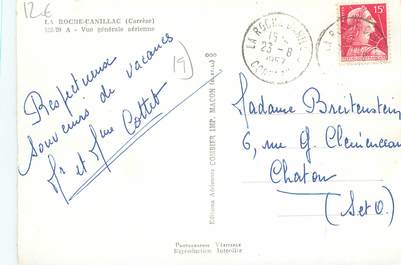 12 €
LA ROCHE-CANILLAC (Corrèze)
A - Vue générale aérienne
19
Respectueux
souvenirs de vacances
Mr et Mme Cottet
Editions Aériennes COMBIER IMP. MACON
LA ROCHE-CANILLAC
23 - 8
1957
CORRÈZE
15F
Madame Breitenstein
6, rue G. Clemenceau
Chatou
(S et O.)
Photographie Véritable
Reproduction Interdite